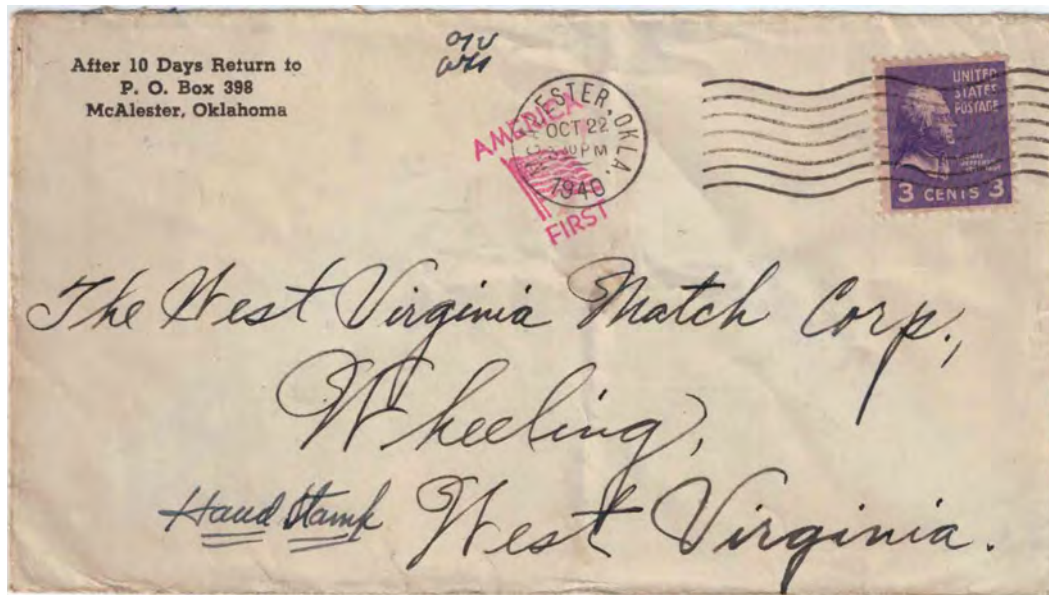 After 10 Days Return to
P. O. Box 398
McAlester, Oklahoma
OCT 22
PM
1940
OKLA.
AMERICA
FIRST
UNITED
STATES
POSTAGE
3 CENTS 3
The West Virginia Match Corp.,
Wheeling,
Hand Stamp West Virginia.